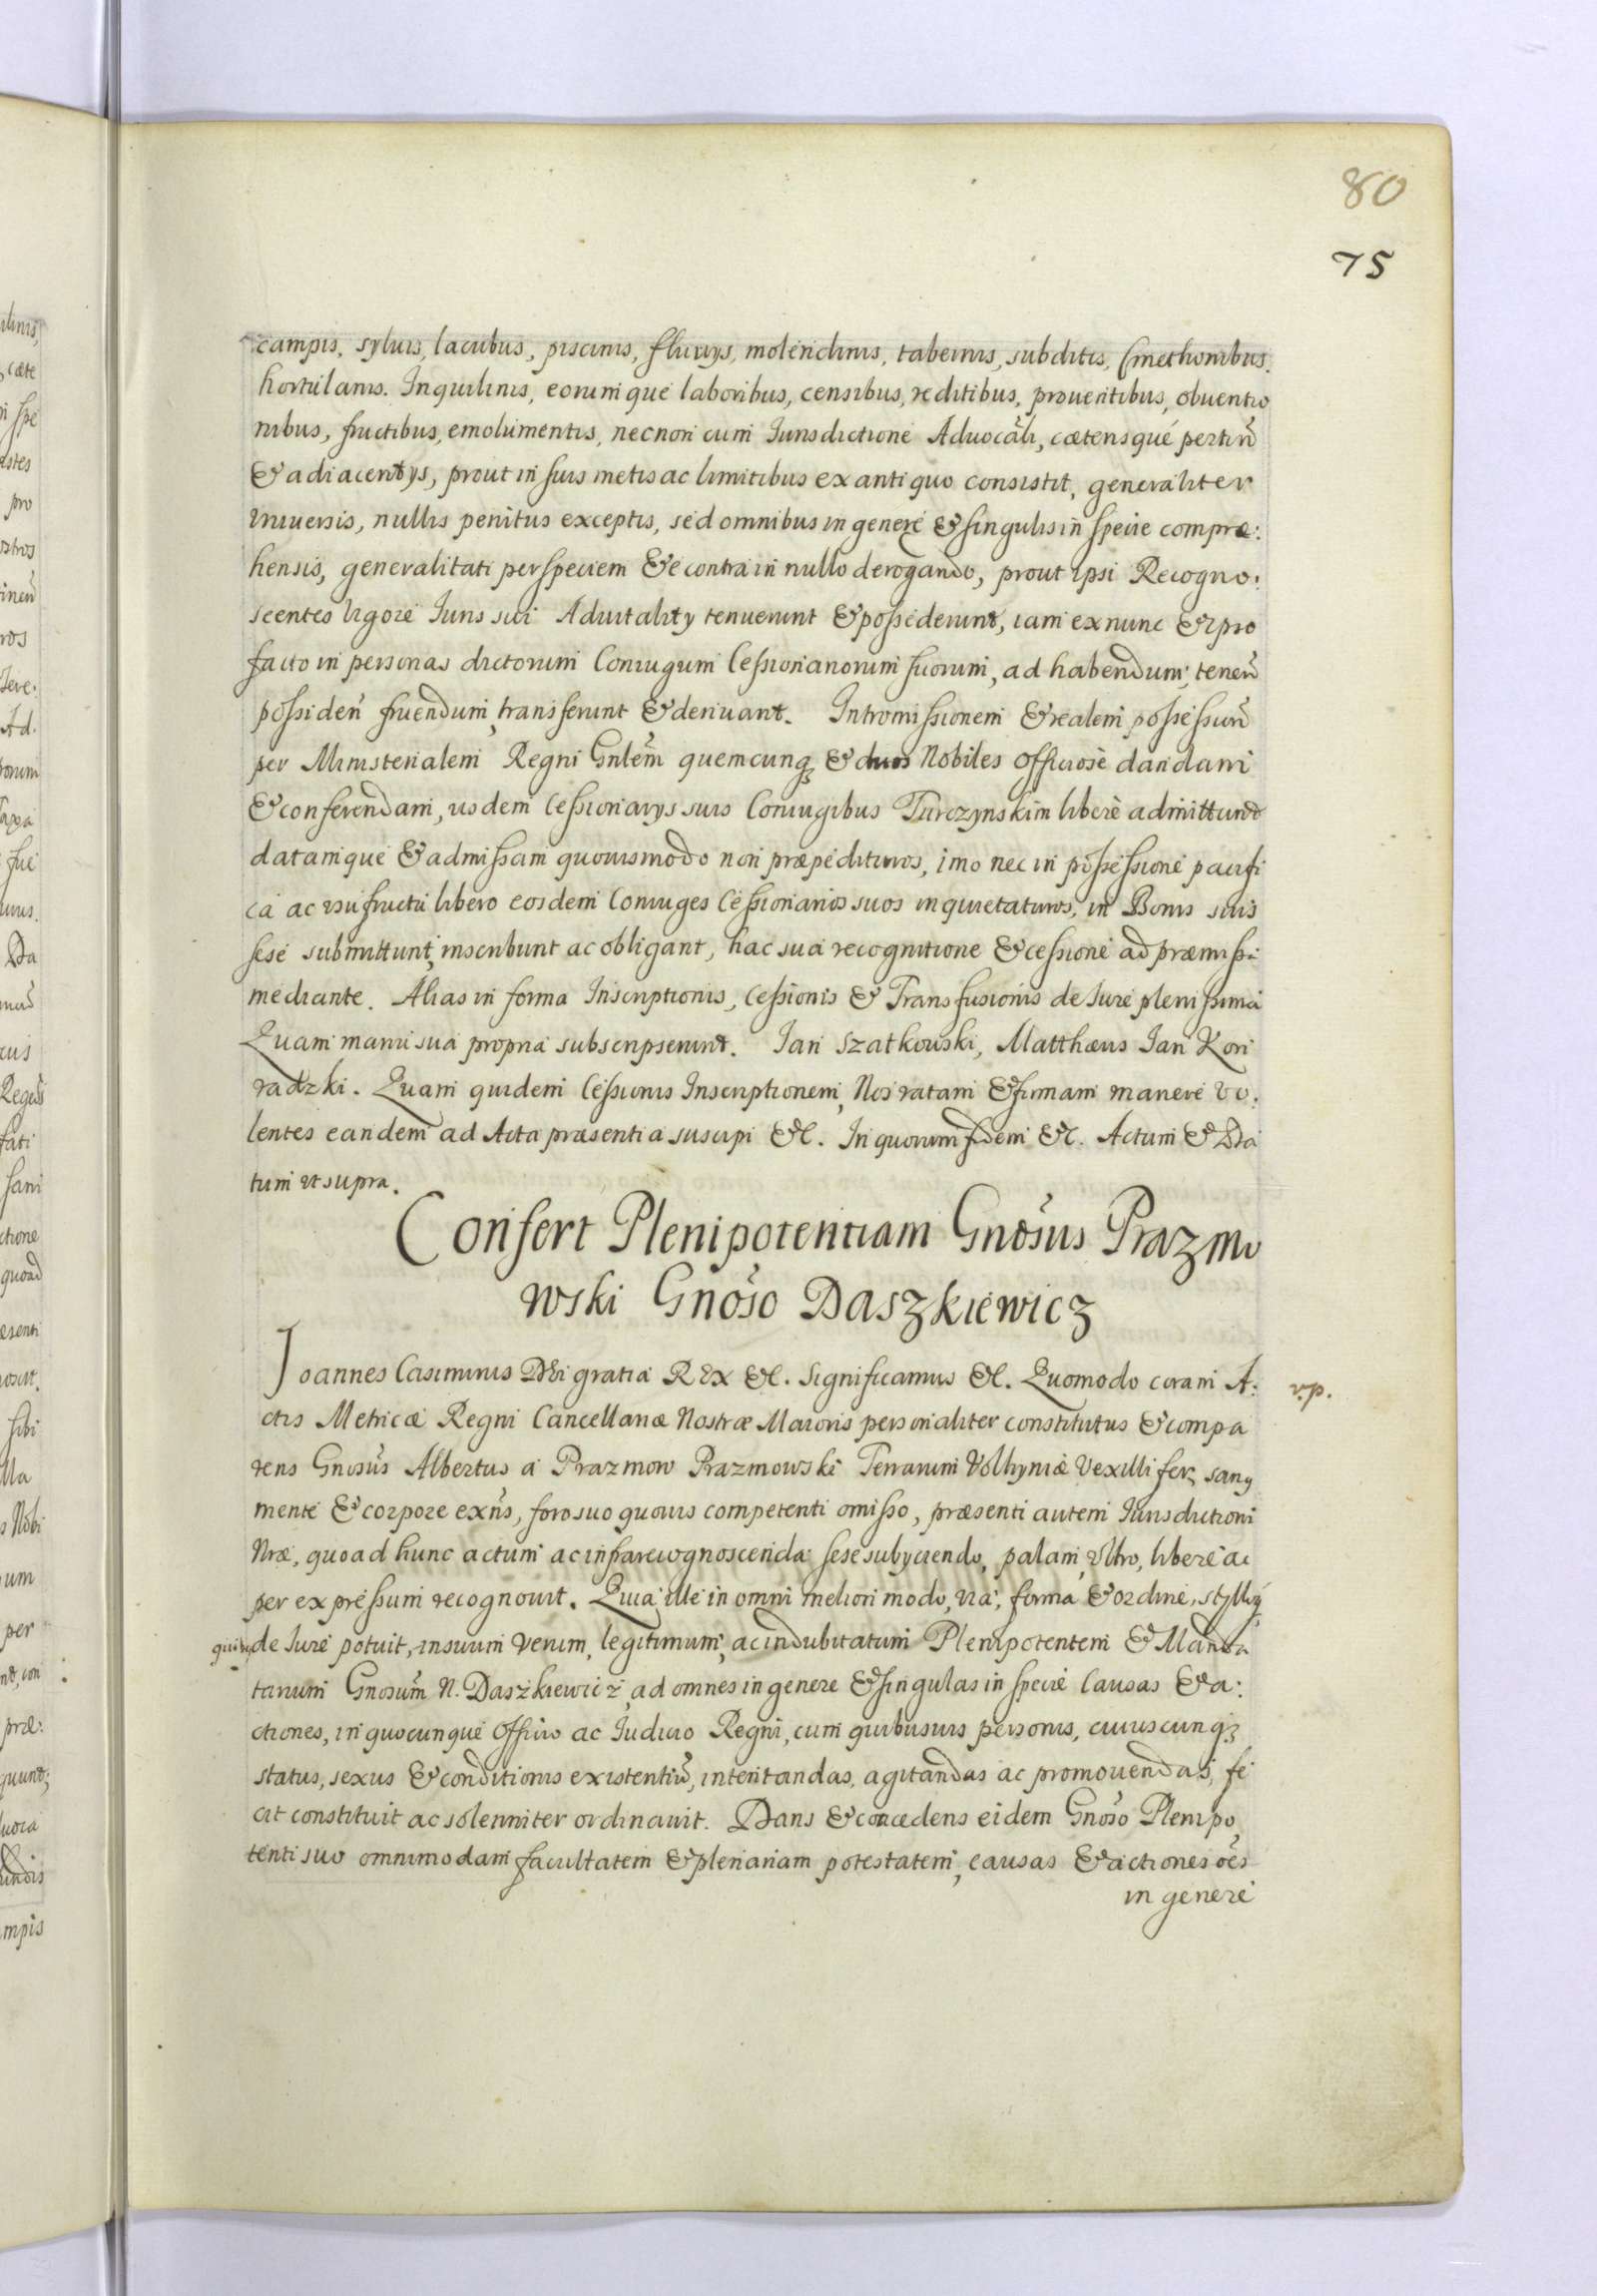 80
75
campis, syluis, lacubus, piscinis, fluuys, molendinis, tabernis, subditis, Cmethonibus,
hortulanis. Inquilinis, eorumque laboribus, censibus, reditibus, prouentibus, obuentio
nibus, fructibus, emolumentis, necnon cum Iurisdictione Aduocali, cæterisque pertiñ
& adiacentys, prout in suis metis ac limitibus ex antiquo consistit, generaliter
vniuersis, nullis penitus exceptis, sed omnibus in genere & singulis in specie compræ:
hensis, generalitati per speciem & e contra in nullo derogando, prout ipsi Recogno:
scentes vigore Iuris sui Aduitality tenuerunt & possederunt, iam ex nunc & ipso
facto in personas dictorum Coniugum Cessionariorum suorum, ad habendum, teneñ
possideñ fruendum, transferunt & deriuant. Intromissionem & realem possessioñ
per Ministerialem Regni Gnlem quemcunq & duos Nobiles officiose dandam
& conferendam, ijsdem Cessionarys suis Coniugibus Turczynskim libere admittunt
datamque & admissam quouismodo non præpedituros, imo nec in possessione pacifi
ca ac vsufructu libero eosdem Coniuges Cessionarios suos inquietaturos, in Bonis suis
sese submittunt, inscribunt ac obligant, hac sua recognitione & cessione ad præmissa
mediante. Alias in forma Inscriptionis, Cessionis & Transfusionis de Iure plenissima
Quam manu sua propria subscripserunt. Jan Szatkowski, Matthæus Jan Kon
radzki. Quam quidem Cessionis Inscriptionem, Nos ratam & firmam manere vo:
lentes eandem ad Acta præsentia suscipi &c. In quorum fidem &c. Actum & Da
tum vt supra.
Confert Plenipotentiam Gnosus Prazmo
wski Gnoso Daszkiewicz
Joannes Casimirus Dei gratia Rex &c. Significamus &c. Quomodo coram A:
v.p.
ctis Metricæ Regni Cancellariæ Nostræ Maioris personaliter constitutus & compa
rens Gnosus Albertus a Prazmow Prazmowski Terrarum Volhyniæ Vexillifer, sang
mente & corpore exñs, foro suo quouis competenti omisso, præsenti autem Iurisdictioni
Nræ, quoad hunc actum ac infrarecognoscenda sese subyciendo, palam, vltro, libere ac
per expressum recognouit. Quia ille in omni meliori modo, via, forma & ordine, styllo
quibus de Iure potuit, in suum verum, legitimum, ac indubitatum Plenipotentem & Manda
tarium Gnosum N. Daszkiewicz, ad omnes in genere & singulas in specie Causas & a:
ctiones, in quocunque Officio ac Iudicio Regni, cum quibusuis personis, cuiuscunq
status, sexus & conditionis existentiu, intentandas, agitandas ac promouendas, fe
cit constituit ac solenniter ordinauit. Dans & concedens eidem Gnoso Plenipo
tenti suo omnimodam facultatem & plenariam potestatem, causas & actiones oes
in genere